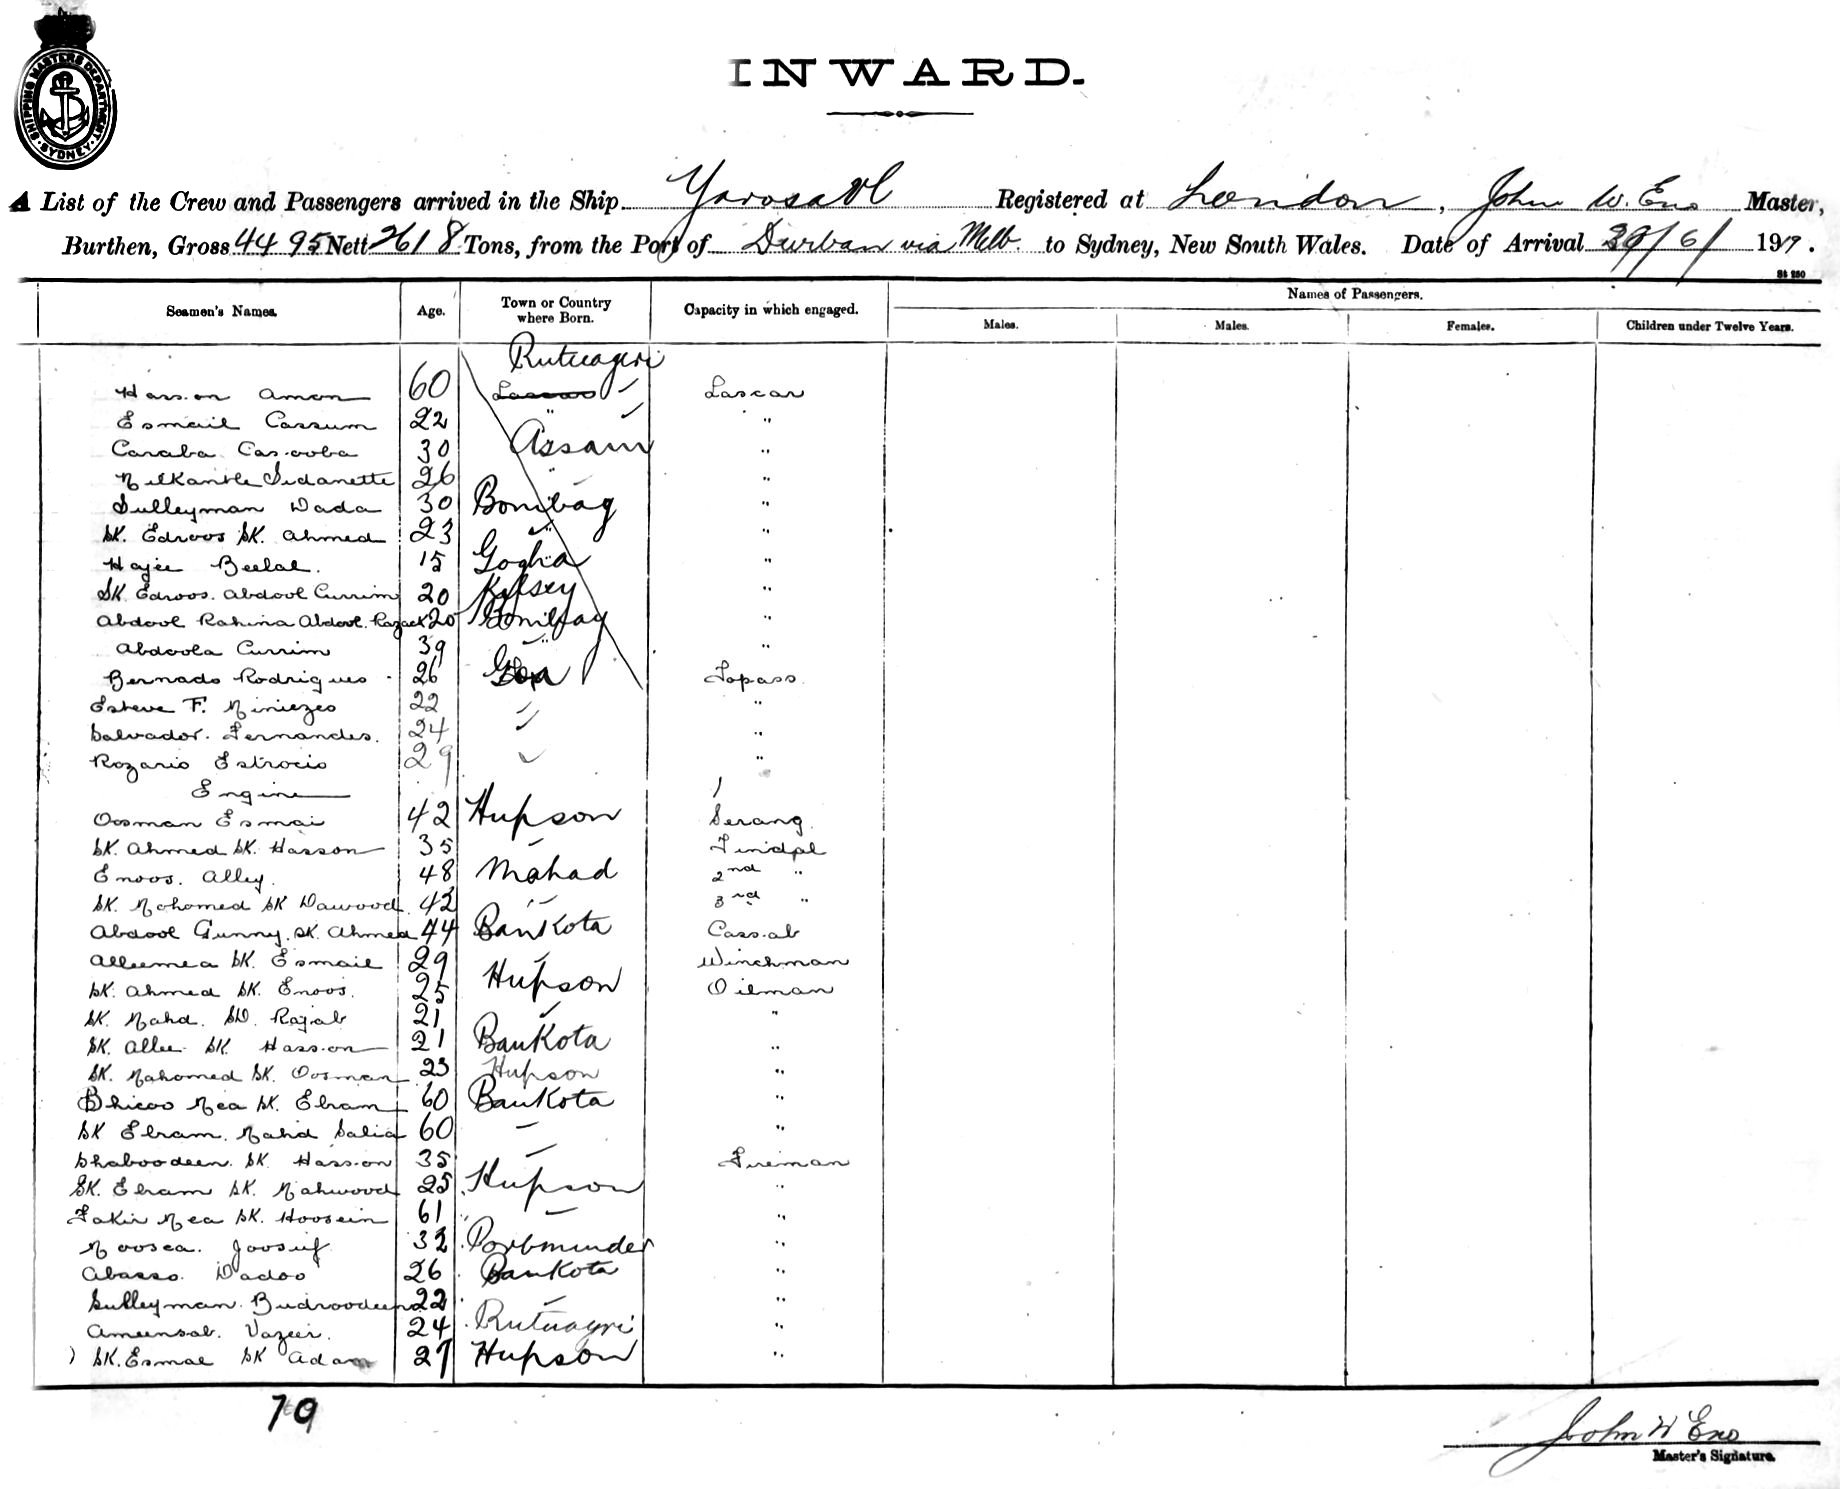 SHIPPING MASTERS DEPARTMENT SYDNEY
INWARD.
A List of the Crew and Passengers arrived in the Ship Registered at London, John W. Eno Master,
Burthen, Gross 4495 Nett 2618 Tons, from the Port of Durban via Melb. to Sydney, New South Wales. Date of Arrival /6/ 1917.
St 280
Seamen's Names. Age. Town or Country where Born. Capacity in which engaged. Names of Passengers.
Males. Males. Females. Children under Twelve Years.
Rutnagri
Hasson Amon 60 Lascar
Esmail Cassum 22 " "
Caraba Casooba 30 Assam "
26 " "
Sulleyman Dada 30 Bombay "
SK. Edroos SK. Ahmed 23 " "
Hajee Beelal. 15 Gogha "
SK. Edroos. Abdool Currim 20 "
Abdool Rahina Abdool Razack 20 Bombay "
Abdoola Currim 39 " "
Bernado Rodrigues 26 Goa Topass
Esteve F. Miniezes 22 "
Salvador. Fernandes. 24 "
Rozario Estrocio 29 "
Engine
Oosman Esmai 42 Hupson Serang
SK. Ahmed SK. Hasson 35 Tindal
Enoos. Alley. 48 Mahad 2nd "
SK. Mohomed SK Dawood 42 " 3rd "
Abdool Gunny. SK. Ahmed 44 BanKota Cassab
Alleemea SK. Esmail 29 Winchman
SK. Ahmed SK. Enoos. 25 Hupson Oilman
SK. Mahd. SD. Rajab 21 "
SK. Allee SK. Hasson 21 BanKota "
SK. Mahomed SK. Oosman 23 Hupson "
Bhicoo Mea SK. Ebram 60 BanKota "
SK Ebram. Mahd Salia 60 "
Shaboodeen. SK. Hasson 35 Fireman
SK. Ebram SK. Mahwood 25 Hupson "
Fakir Mea SK. Hoosein 61 "
Moosea. Joosuf 32 Porbmunder "
Abasso. Dadoo 26 BanKota "
Sulleyman. Budroodeen 22 "
Ameensab. Vazeer. 24 Rutnagri "
SK. Esmae SK Adam 27 Hupson "
John W Eno
Master's Signature.